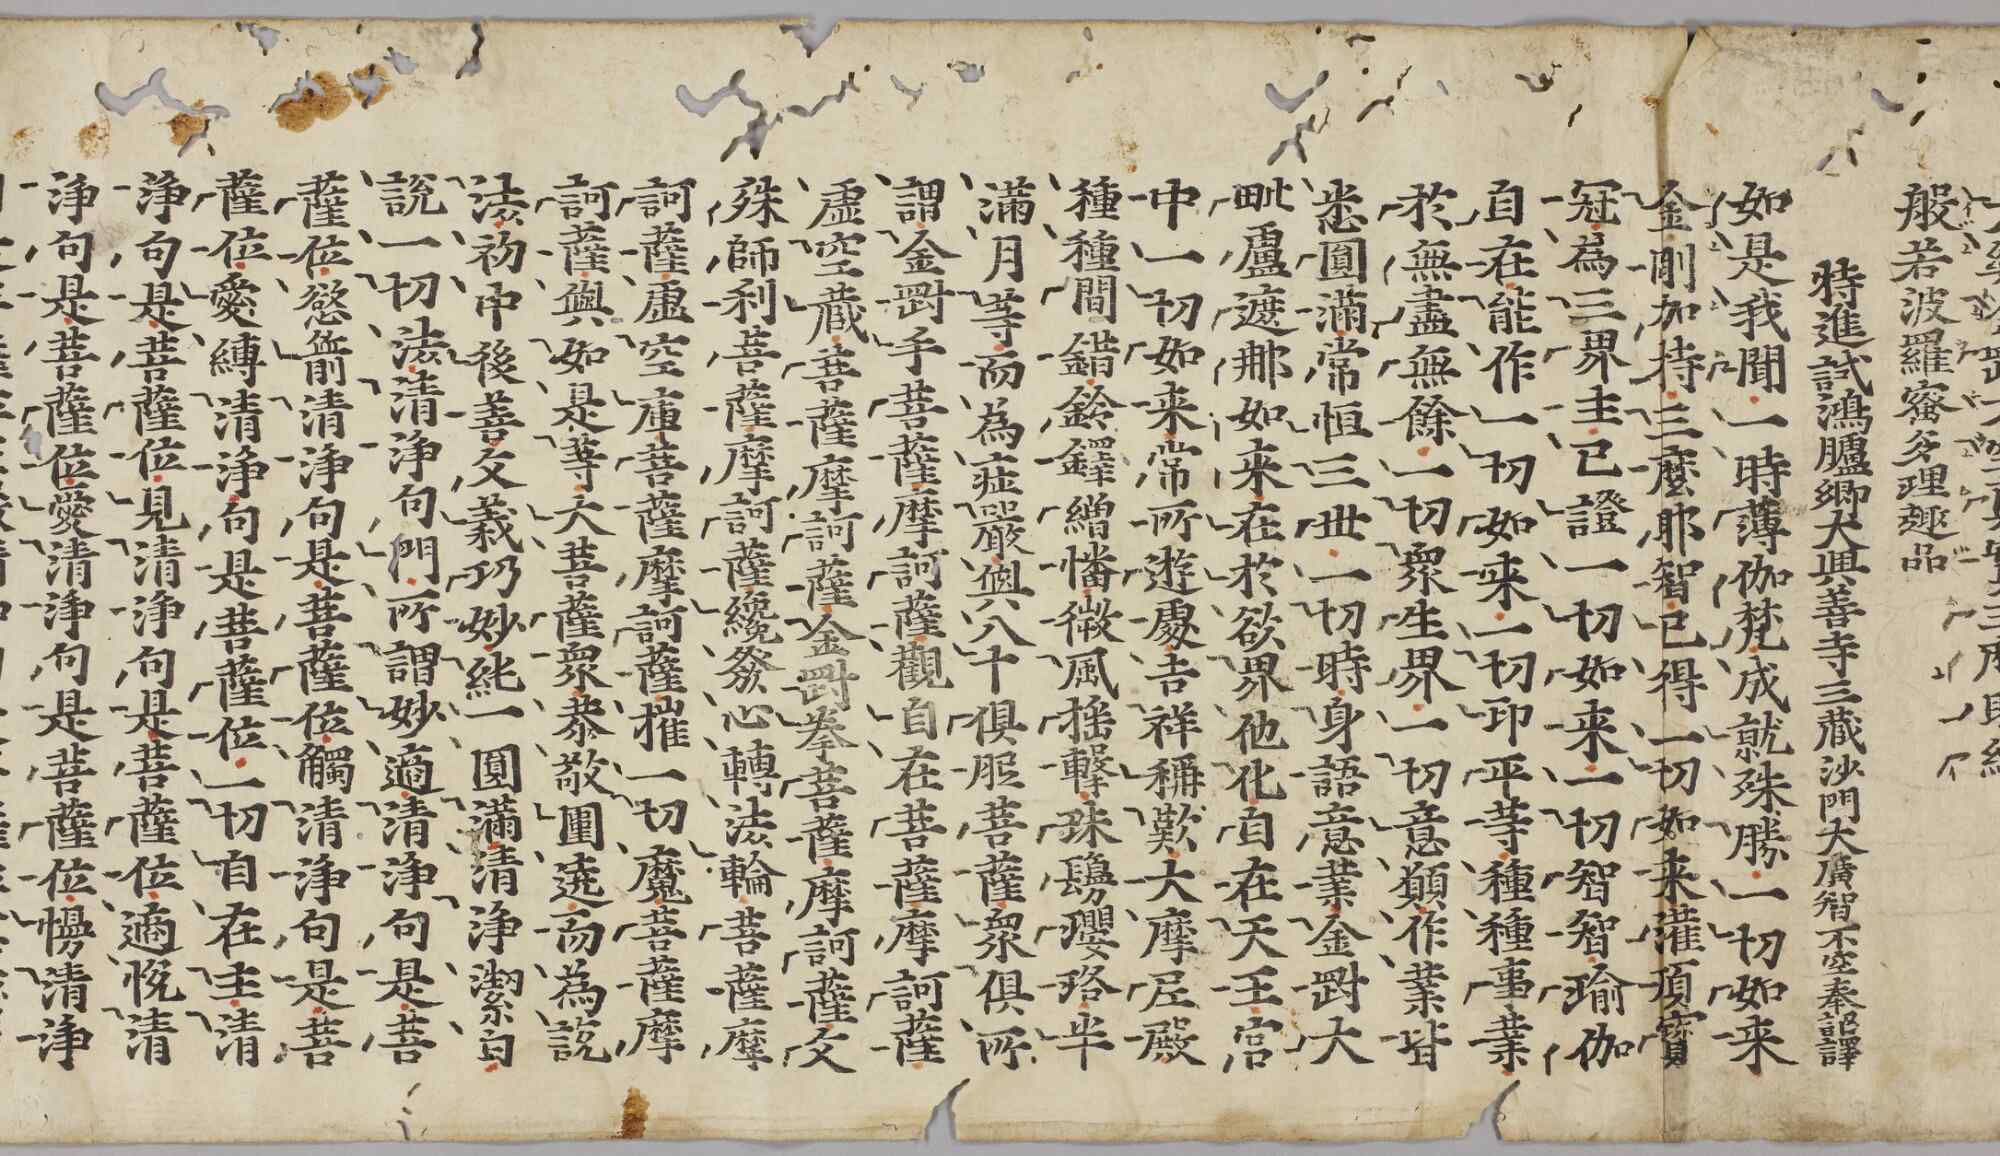 大樂金剛不空真實三麼耶經
般若波羅蜜多理趣品
特進試鴻臚卿大興善寺三藏沙門大廣智不空奉詔譯
如是我聞一時薄伽梵成就殊勝一切如来
金剛加持三麼耶智已得一切如来灌頂寶
冠為三界主已證一切如来一切智智瑜伽
自在能作一切如来一切印平等種種事業
於無盡無餘一切眾生界一切意願作業皆
悉圓滿常恒三世一切時身語意業金剛大
毗盧遮那如来在於欲界他化自在天王宮
中一切如来常所遊處吉祥稱歎大摩尼殿
種種間錯鈴鐸繒幡微風搖擊珠鬘瓔珞半
滿月等而為莊嚴與八十俱胝菩薩眾俱所
謂金剛手菩薩摩訶薩觀自在菩薩摩訶薩
虛空藏菩薩摩訶薩金剛拳菩薩摩訶薩文
殊師利菩薩摩訶薩纔發心轉法輪菩薩摩
訶薩虛空庫菩薩摩訶薩摧一切魔菩薩摩
訶薩與如是等大菩薩眾恭敬圍遶而為說
法初中後善文義巧妙純一圓滿清淨潔白
說一切法清淨句門所謂妙適清淨句是菩
薩位慾箭清淨句是菩薩位觸清淨句是菩
薩位愛縛清淨句是菩薩位一切自在主清
淨句是菩薩位見清淨句是菩薩位適悅清
淨句是菩薩位愛清淨句是菩薩位慢清淨